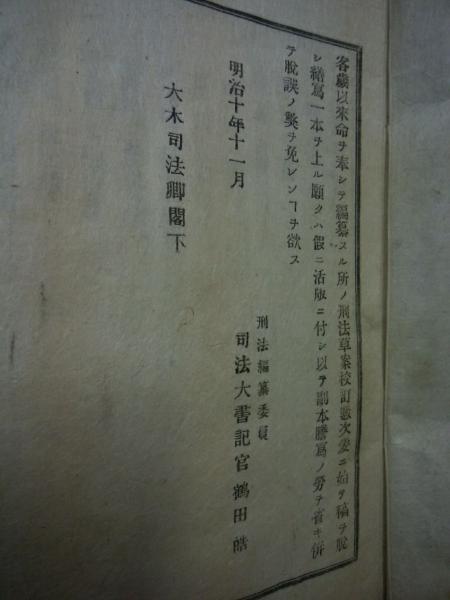 客歲以來命ヲ奉シテ編纂スル所ノ刑法草案校訂數次爰ニ始テ稿ヲ脫
シ繕寫一本ヲ上ル願クハ假ニ活版ニ付シ以テ副本謄寫ノ勞ヲ省キ併
テ脫誤ノ弊ヲ免レンヿヲ欲ス
明治十年十一月
刑法編纂委員
司法大書記官鶴田皓
大木司法卿閣下